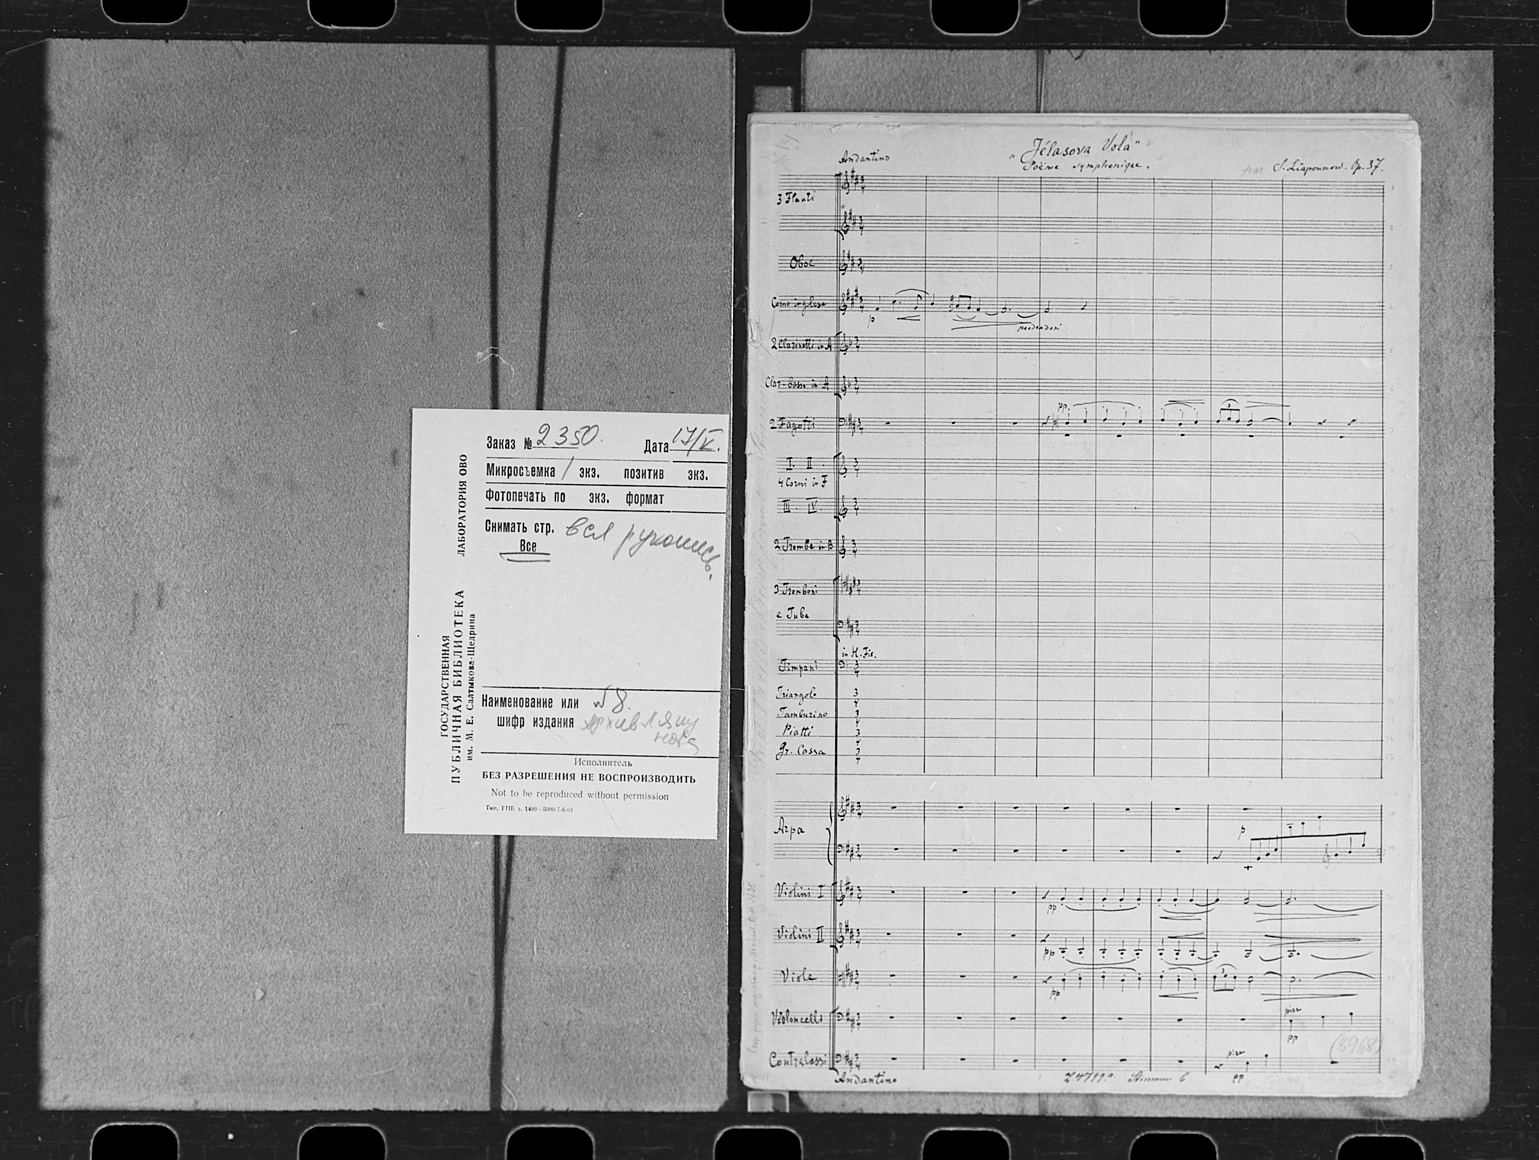 Заказ № 2350. Дата 17/V.
Микросъемка 1 экз. позитив экз.
Фотопечать по экз. формат
Снимать стр. вся рукопись.
Все
Наименование или №8.
шифр издания Архив Ляпу
нова
Исполнитель
БЕЗ РАЗРЕШЕНИЯ НЕ ВОСПРОИЗВОДИТЬ
Not to be reproduced without permission
Тип. ГПБ з. 1499—5000 7-6-61
ЛАБОРАТОРИЯ ОВО
ГОСУДАРСТВЕННАЯ
ПУБЛИЧНАЯ БИБЛИОТЕКА
им. М. Е. Салтыкова-Щедрина
"Jélasova Vola"
Poëme symphonique.
S. Liapounow. Op. 37.
Andantino
3 Flauti
Oboe
Corno inglese
p
perdendosi
2 Clarinetti in A
Clar. basso in A
2 Fagotti
pp
3
I. II.
4 Corni in F
III. IV.
2 Trombe in B
3 Tromboni
e Tuba
in H. Fis.
Timpani
Triangolo
Tamburino
Piatti
Gr. Cassa
Arpa
p
Violini I
pp
Violini II
pp
Viole
pp
3
Violoncelli
pizz
pp
Contrabassi
pizz
pp
(8968)
Andantino